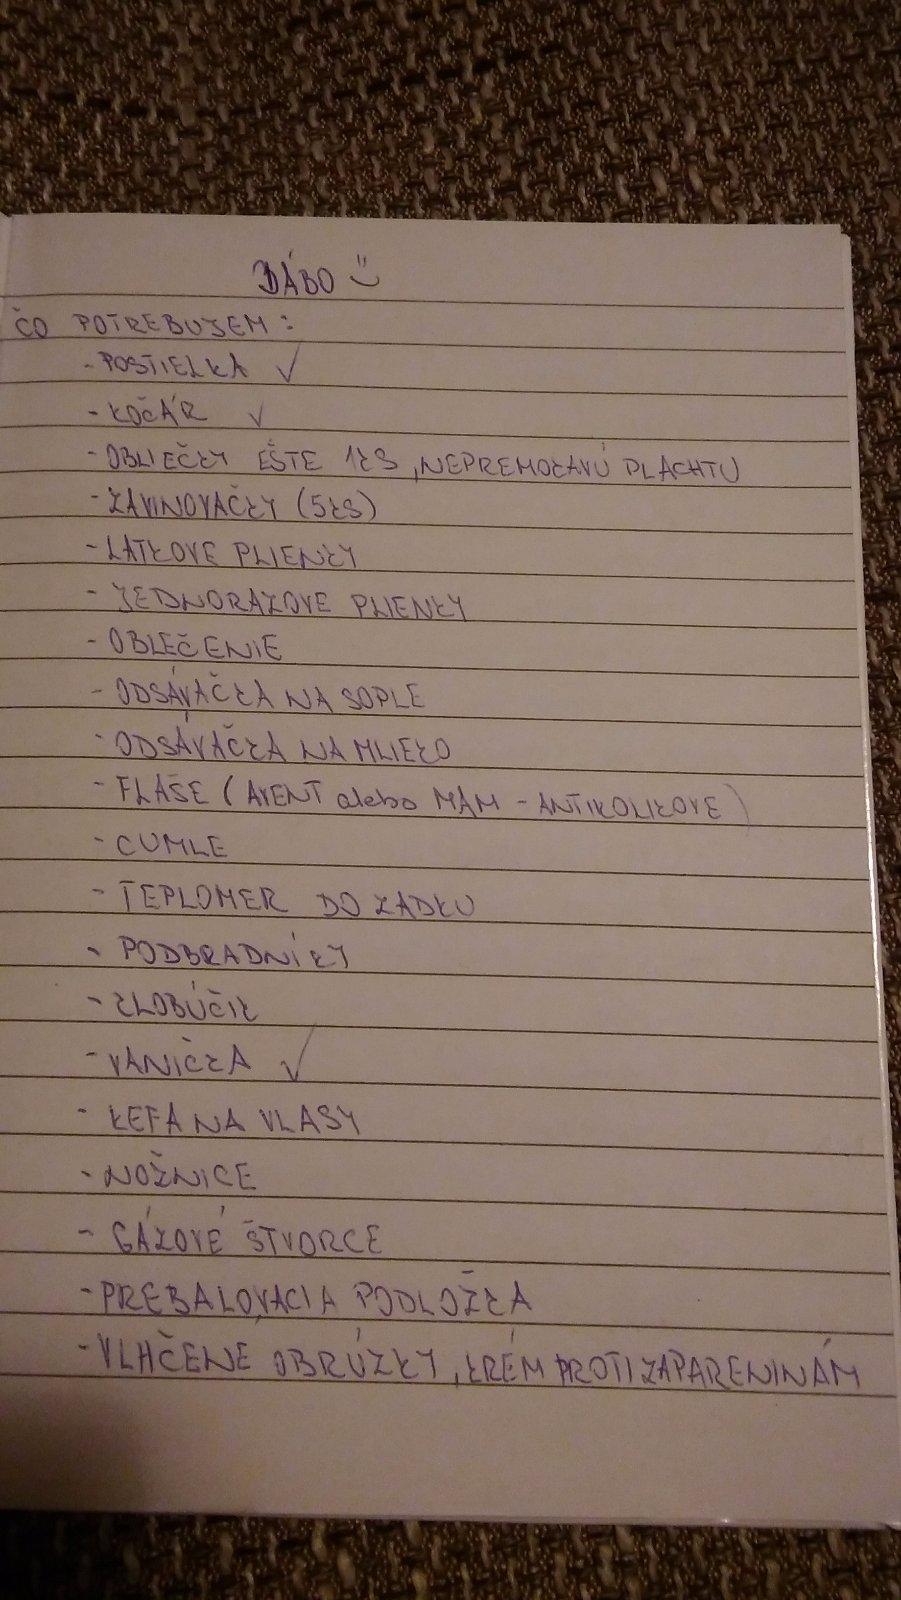 BÁBO
ČO POTREBUJEM:
- POSTIELKA ✓
- KOČÁR ✓
- OBLIEČKY EŠTE 1KS, NEPREMOKAVÚ PLACHTU
- ZAVINOVAČKY (5KS)
- LATKOVE PLIENKY
- JEDNORAZOVE PLIENKY
- OBLEČENIE
- ODSÁVAČKA NA SOPLE
- ODSÁVAČKA NA MLIEKO
- FLAŠE (AVENT alebo MAM - ANTIKOLIKOVE)
- CUMLE
- TEPLOMER DO ZADKU
- PODBRADNÍKY
- KLOBÚČIK
- VANIČKA ✓
- KEFA NA VLASY
- NOŽNICE
- GÁZOVÉ ŠTVORCE
- PREBALOVACIA PODLOŽKA
- VLHČENÉ OBRÚZKY, KRÉM PROTI ZAPARENINÁM